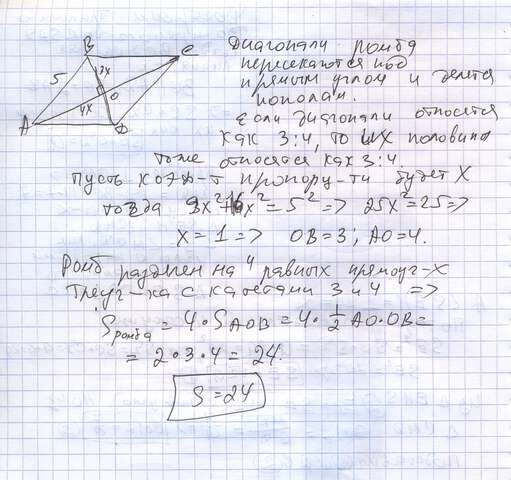 B C
5 3x
4x O
A D
Диагонали ромба
пересекаются под
прямым углом и делятся
пополам.
Если диагонали относятся
как 3:4, то их половины
тоже относятся как 3:4.
Пусть коэф-т пропорц-ти будет X
тогда 9x²+16x² = 5² => 25x² = 25 =>
X = 1 => OB = 3; AO = 4.
Ромб разделен на 4 равных прямоуг-х
треуг-ка с катетами 3 и 4 =>
Sромба = 4 · SAOB = 4 · 1/2 AO · OB =
= 2 · 3 · 4 = 24.
S = 24